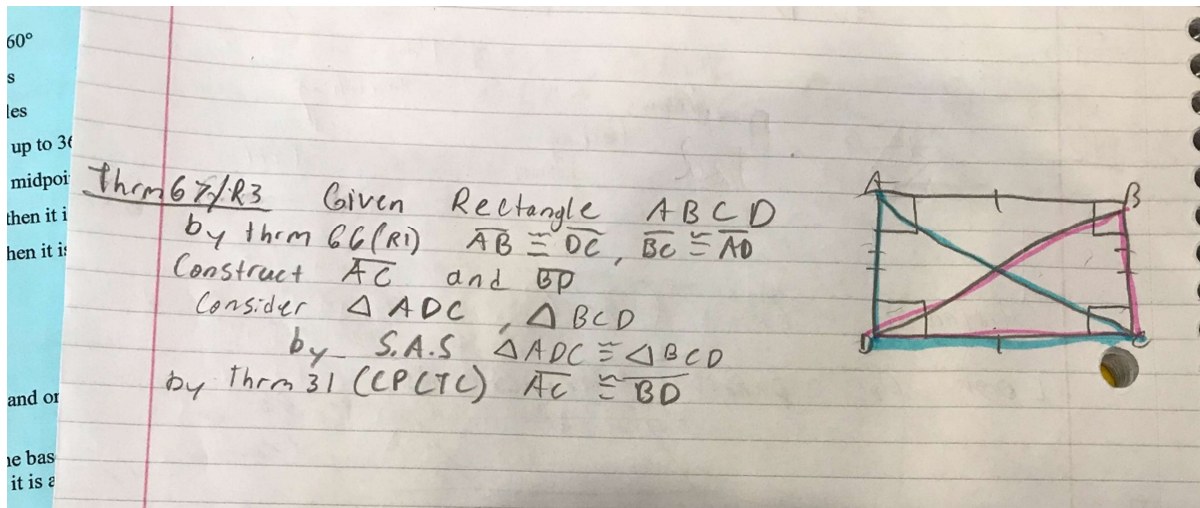 60°
s
les
up to 36
midpoi
then it i
hen it is
and or
he bas
it is a
Thrm 67/R3 Given Rectangle ABCD
by thrm 66(R1) AB ≅ DC, BC ≅ AD
Construct AC and BD
Consider △ ADC, △ BCD
by S.A.S △ADC ≅ △BCD
by Thrm 31 (CPCTC) AC ≅ BD
A B
D C